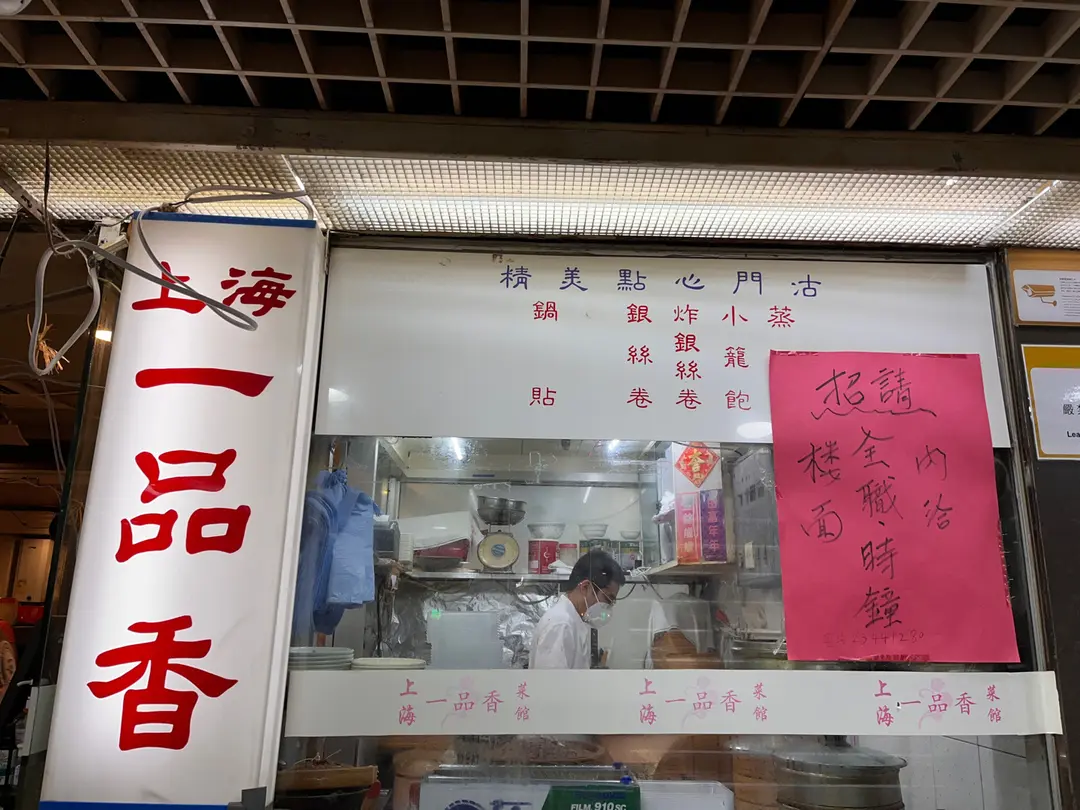 上海
一品香
精美點心門沽
鍋貼
銀絲卷
炸銀絲卷
小籠飽
蒸
招請
楼面
全職、時鐘
內洽
上海一品香菜館
上海一品香菜館
上海一品香菜館
嚴
Lea
FILM. 910